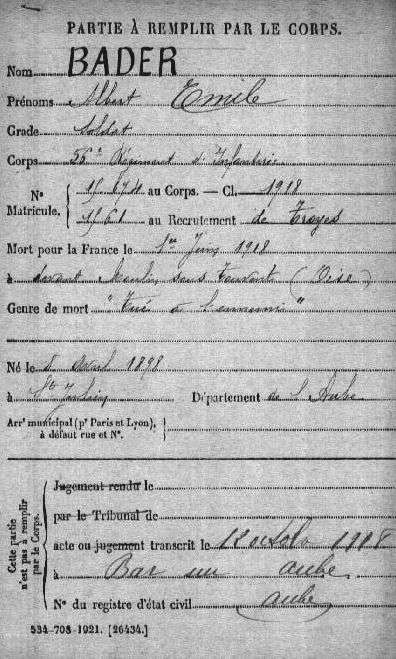 PARTIE À REMPLIR PAR LE CORPS.
Nom BADER
Prénoms Albert Emile
Grade Soldat
Corps 56e Régiment d'Infanterie
Nº
Matricule.
au Corps. — Cl. 1918
1561 au Recrutement de Troyes
Mort pour la France le 1er Juin 1918
à devant Moulin sous Touvent (Oise)
Genre de mort "Tué à l'ennemi"
Né le 5 avril 1898
à St Julien Département de l'Aube
Arrt municipal (pr Paris et Lyon),
à défaut rue et Nº.
Cette partie
n'est pas à remplir
par le Corps.
Jugement rendu le
par le Tribunal de
acte ou jugement transcrit le octobre 1918
à Bar sur aube,
Nº du registre d'état civil (aube)
534-708-1921. [26434.]